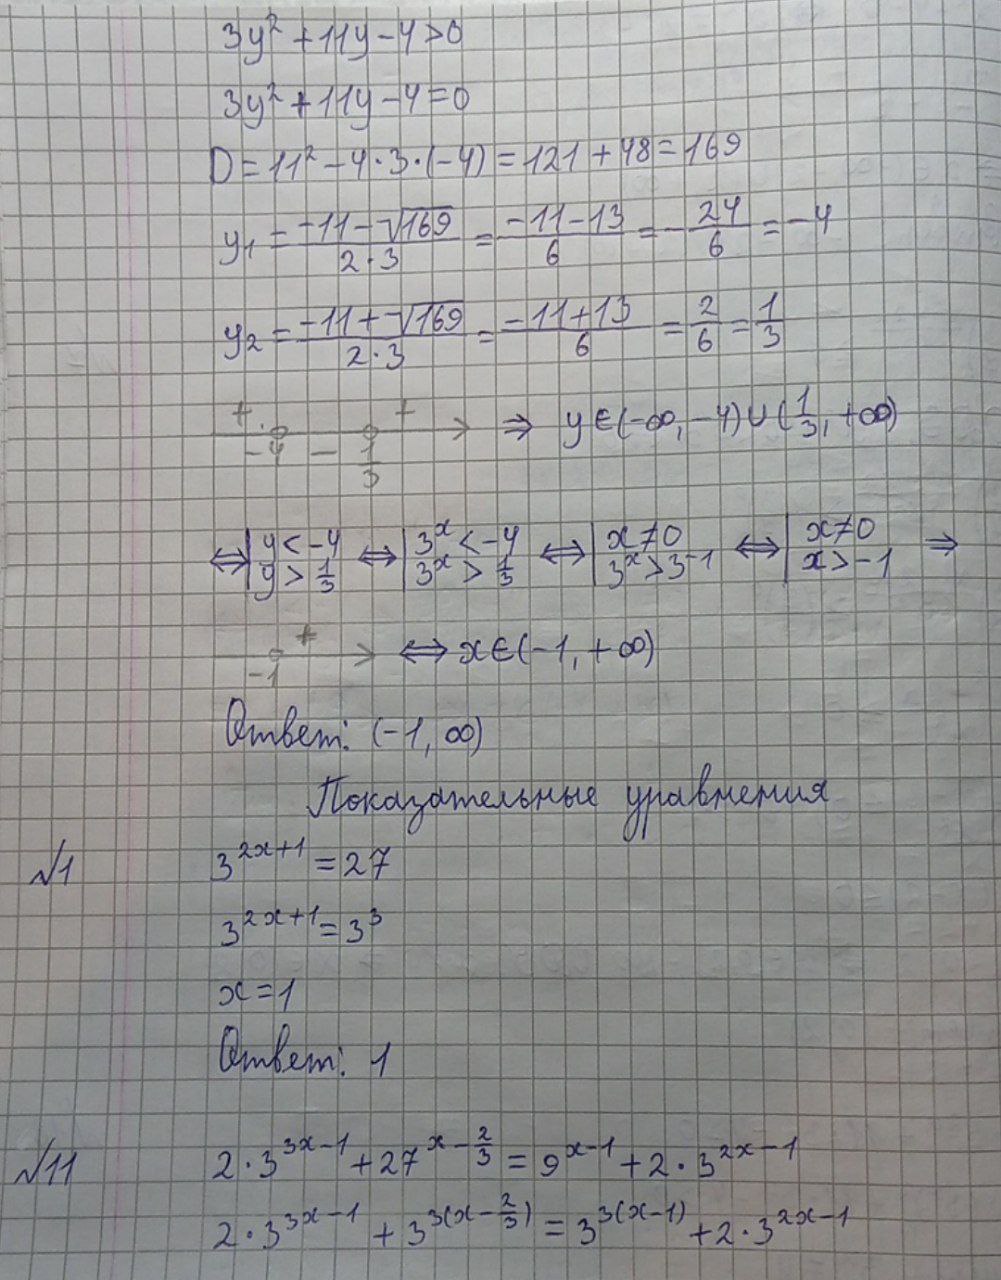 3y² + 11y - 4 > 0
3y² + 11y - 4 = 0
D = 11² - 4 · 3 · (-4) = 121 + 48 = 169
y₁ = (-11 - √169)/(2 · 3) = (-11 - 13)/6 = -24/6 = -4
y₂ = (-11 + √169)/(2 · 3) = (-11 + 13)/6 = 2/6 = 1/3
+ -4 - 1/3 + ⇒ y ∈ (-∞, -4) ∪ (1/3, +∞)
⇔ | y < -4 ⇔ | 3ˣ < -4 ⇔ | x ≠ 0 ⇔ | x ≠ 0 ⇒
y > 1/3 3ˣ > 1/3 3ˣ > 3⁻¹ x > -1
-1 + ⇔ x ∈ (-1, +∞)
Ответ: (-1, ∞)
Показательные уравнения
№1 3^(2x+1) = 27
3^(2x+1) = 3³
x = 1
Ответ: 1
№11 2 · 3^(3x-1) + 27^(x - 2/3) = 9^(x-1) + 2 · 3^(2x-1)
2 · 3^(3x-1) + 3^(3(x - 2/3)) = 3^(3(x-1)) + 2 · 3^(2x-1)